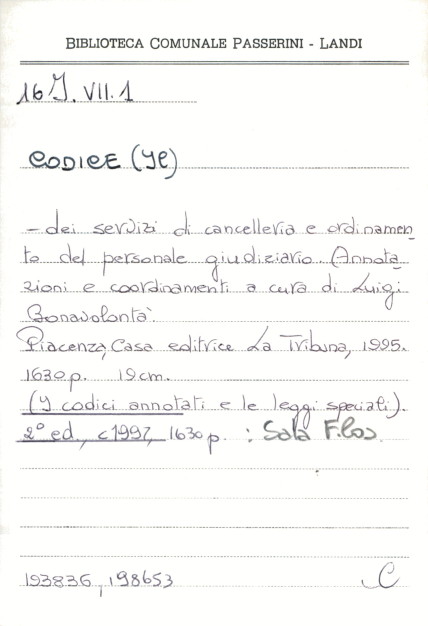 BIBLIOTECA COMUNALE PASSERINI - LANDI
16 I. VII. 1
CODICE (Il)
- dei servizi di cancelleria e ordinamen
to del personale giudiziario. (Annota
zioni e coordinamenti a cura di Luigi
Bonavolontà.
Piacenza, Casa editrice La Tribuna, 1995.
1630 p. 19 cm.
(I codici annotati e le leggi speciali).
2° ed., c1997, 1630 p. : Sala F.
193836, 198653
C